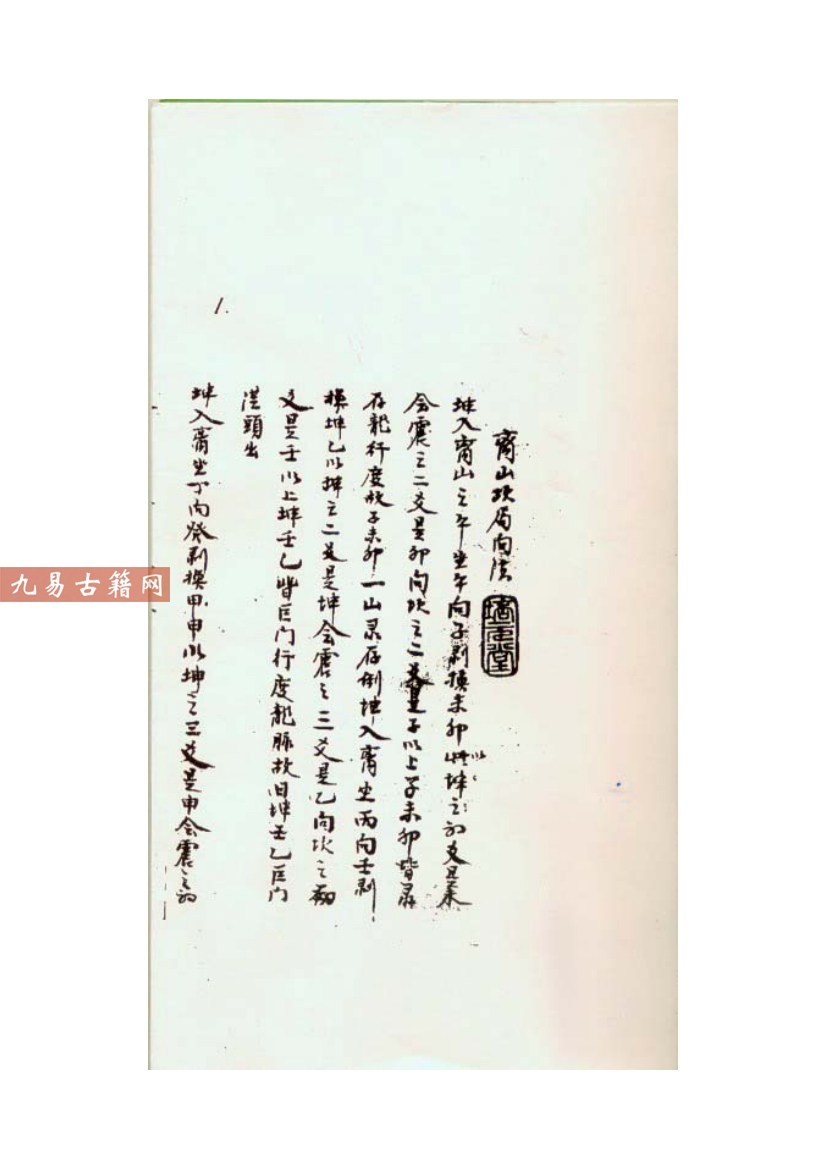 离山坎局向法
坤入离山之午坐午向子剥换未卯以坤之初爻是未
会震之二爻是卯向坎之二爻是子以上子未卯皆录
存龙行度故子未卯一山录存倒坤入离坐丙向壬剥
换坤乙以坤之二爻是坤会震之三爻是乙向坎之初
爻是壬以上坤壬乙皆巨门行度龍脈故曰坤壬乙巨门
從頭出
坤入离坐丁向癸剥换甲申以坤之三爻是申会震之初
1.
九易古籍网